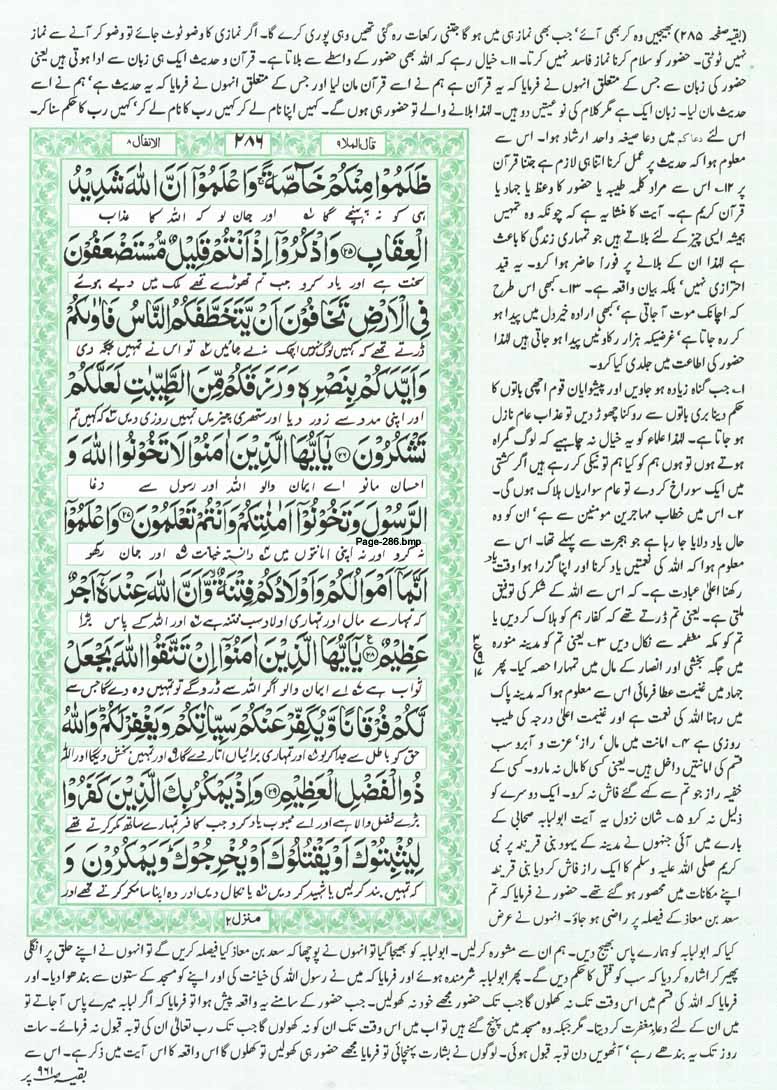 (بقیہ صفحہ ۲۸۵) بھیجیں وہ کر بھی آئے' جب بھی نماز ہی میں ہو گا جتنی رکعات رہ گئی تھیں وہی پوری کرے گا۔ اگر نمازی کا وضو ٹوٹ جائے تو وضو کر آنے سے نماز
نہیں ٹوٹتی۔ حضور کو سلام کرنا نماز فاسد نہیں کرتا۔ ۱۱۔ خیال رہے کہ اللہ بھی حضور کے واسطے سے بلاتا ہے۔ قرآن و حدیث ایک ہی زبان سے ادا ہوتی ہیں یعنی
حضور کی زبان سے جس کے متعلق انہوں نے فرمایا کہ یہ قرآن ہے ہم نے اسے قرآن مان لیا اور جس کے متعلق انہوں نے فرمایا کہ یہ حدیث ہے' ہم نے اسے
حدیث مان لیا۔ زبان ایک ہے مگر کلام کی نوعیتیں دو ہیں۔ لہٰذا بلانے والے تو حضور ہی ہوں گے۔ کہیں اپنا نام لے کر کہیں رب کا نام لے کر' کہیں رب کا حکم سنا کر۔
اس لئے دعاکم میں دعا صیغہ واحد ارشاد ہوا۔ اس سے
معلوم ہوا کہ حدیث پر عمل کرنا اتنا ہی لازم ہے جتنا قرآن
پر ۱۲۔ اس سے مراد کلمہ طیبہ یا حضور کا وعظ یا جہاد یا
قرآن کریم ہے۔ آیت کا منشا یہ ہے کہ چونکہ وہ تمہیں
ہمیشہ ایسی چیز کے لئے بلاتے ہیں جو تمہاری زندگی کا باعث
ہے لہٰذا ان کے بلانے پر فوراً حاضر ہوا کرو۔ یہ قید
احترازی نہیں' بلکہ بیان واقعہ ہے۔ ۱۳۔ کبھی اس طرح
کہ اچانک موت آ جاتی ہے' کبھی ارادہ خیر دل میں پیدا ہو
کر رہ جاتا ہے' غرضیکہ ہزار رکاوٹیں پیدا ہو جاتی ہیں لہٰذا
حضور کی اطاعت میں جلدی کیا کرو۔
۱۔ جب گناہ زیادہ ہو جاویں اور پیشوایان قوم اچھی باتوں کا
حکم دینا بری باتوں سے روکنا چھوڑ دیں تو عذاب عام نازل
ہو جاتا ہے۔ لہٰذا علماء کو یہ خیال نہ چاہیے کہ لوگ گمراہ
ہوتے ہوں تو ہوں ہم کو کیا ہم تو نیکی کر رہے ہیں اگر کشتی
میں ایک سوراخ کر دے تو عام سواریاں ہلاک ہوں گی۔
۲۔ اس میں خطاب مہاجرین مومنین سے ہے' ان کو وہ
حال یاد دلایا جا رہا ہے جو ہجرت سے پہلے تھا۔ اس سے
معلوم ہوا کہ اللہ کی نعمتیں یاد کرنا اور اپنا گزرا ہوا وقت یاد
رکھنا اعلیٰ عبادت ہے۔ کہ اس سے اللہ کے شکر کی توفیق
ملتی ہے۔ یعنی تم ڈرتے تھے کہ کفار ہم کو ہلاک کر دیں یا
تم کو مکہ معظمہ سے نکال دیں ۳۔ یعنی تم کو مدینہ منورہ
میں جگہ بخشی اور انصار کے مال میں تمہارا حصہ کیا۔ پھر
جہاد میں غنیمت عطا فرمائی اس سے معلوم ہوا کہ مدینہ پاک
میں رہنا اللہ کی نعمت ہے اور غنیمت اعلیٰ درجہ کی طیب
روزی ہے ۴۔ امانت میں مال' راز' عزت و آبرو سب
قسم کی امانتیں داخل ہیں۔ یعنی کسی کا مال نہ مارو۔ کسی کے
خفیہ راز جو تم سے کہے گئے فاش نہ کرو۔ ایک دوسرے کو
ذلیل نہ کرو ۵۔ شان نزول یہ آیت ابولبابہ صحابی کے
بارے میں آئی جنہوں نے مدینہ کے یہود بنی قریظہ پر نبی
کریم صلی اللہ علیہ وسلم کا ایک راز فاش کر دیا بنی قریظہ
اپنے مکانات میں محصور ہو گئے تھے۔ حضور نے فرمایا کہ تم
سعد بن معاذ کے فیصلہ پر راضی ہو جاؤ۔ انہوں نے عرض
قال الملا ۹
۲۸۶
الانفال ۸
ظَلَمُوْا مِنْكُمْ خَآصَّةً ۚ وَاعْلَمُوْٓا اَنَّ اللّٰهَ شَدِيْدُ
ہی کو نہ پہنچے گا اور جان لو کہ اللہ کا عذاب
الْعِقَابِ ۝۲۵ وَاذْكُرُوْٓا اِذْ اَنْتُمْ قَلِيْلٌ مُّسْتَضْعَفُوْنَ
سخت ہے اور یاد کرو جب تم تھوڑے تھے ملک میں دبے ہوئے
فِى الْاَرْضِ تَخَافُوْنَ اَنْ يَّتَخَطَّفَكُمُ النَّاسُ فَاٰوٰىكُمْ
ڈرتے تھے کہ کہیں لوگ تمہیں اچک نہ لے جائیں تو اس نے تمہیں جگہ دی
وَاَيَّدَكُمْ بِنَصْرِهٖ وَرَزَقَكُمْ مِّنَ الطَّيِّبٰتِ لَعَلَّكُمْ
اور اپنی مدد سے زور دیا اور ستھری چیزیں تمہیں روزی دیں کہ کہیں تم
تَشْكُرُوْنَ ۝۲۶ يٰٓاَيُّهَا الَّذِيْنَ اٰمَنُوْا لَا تَخُوْنُوا اللّٰهَ وَ
احسان مانو اے ایمان والو اللہ اور رسول سے دغا
الرَّسُوْلَ وَتَخُوْنُوْٓا اَمٰنٰتِكُمْ وَاَنْتُمْ تَعْلَمُوْنَ ۝۲۷ وَاعْلَمُوْٓا
Page-286.bmp
نہ کرو اور نہ اپنی امانتوں میں دانستہ خیانت اور جان رکھو
اَنَّمَآ اَمْوَالُكُمْ وَاَوْلَادُكُمْ فِتْنَةٌ ۙ وَّاَنَّ اللّٰهَ عِنْدَهٗٓ اَجْرٌ
کہ تمہارے مال اور تمہاری اولاد سب فتنہ ہے اور اللہ کے پاس بڑا
عَظِيْمٌ ۝۲۸ يٰٓاَيُّهَا الَّذِيْنَ اٰمَنُوْٓا اِنْ تَتَّقُوا اللّٰهَ يَجْعَلْ
ثواب ہے اے ایمان والو اگر اللہ سے ڈرو گے تو تمہیں وہ دے گا جس سے
لَّكُمْ فُرْقَانًا وَّيُكَفِّرْ عَنْكُمْ سَيِّاٰتِكُمْ وَيَغْفِرْ لَكُمْ ۭ وَاللّٰهُ
حق کو باطل سے جدا کر لو اور تمہاری برائیاں اتار دے گا اور تمہیں بخش دیگا اور اللہ
ذُو الْفَضْلِ الْعَظِيْمِ ۝۲۹ وَاِذْ يَمْكُرُ بِكَ الَّذِيْنَ كَفَرُوْا
بڑے فضل والا ہے اور اے محبوب یاد کرو جب کافر تمہارے ساتھ مکر کرتے تھے
لِيُثْبِتُوْكَ اَوْ يَقْتُلُوْكَ اَوْ يُخْرِجُوْكَ ۭ وَيَمْكُرُوْنَ وَ
کہ تمہیں بند کر لیں یا شہید کر دیں یا نکال دیں اور وہ اپنا سا مکر کرتے تھے اور
منزل ۲
کیا کہ ابولبابہ کو ہمارے پاس بھیج دیں۔ ہم ان سے مشورہ کر لیں۔ ابولبابہ کو بھیجا گیا تو انہوں نے پوچھا کہ سعد بن معاذ کیا فیصلہ کریں گے تو انہوں نے اپنے حلق پر انگلی
پھیر کر اشارہ کر دیا کہ سب کو قتل کا حکم دیں گے۔ پھر ابولبابہ شرمندہ ہوئے اور فرمایا کہ میں نے رسول اللہ کی خیانت کی اور اپنے کو مسجد کے ستون سے بندھوا دیا۔ اور
فرمایا کہ اللہ کی قسم میں اس وقت تک نہ کھلوں گا جب تک حضور مجھے خود نہ کھولیں۔ جب حضور کے سامنے یہ واقعہ پیش ہوا تو فرمایا کہ اگر لبابہ میرے پاس آ جاتے تو
میں ان کے لئے دعاءِ مغفرت کر دیتا۔ مگر جبکہ وہ مسجد میں پہنچ گئے ہیں تو اب میں اس وقت تک ان کو نہ کھولوں گا جب تک رب تعالیٰ ان کی توبہ قبول نہ فرمائے۔ سات
روز تک یہ بندھے رہے' آٹھویں دن توبہ قبول ہوئی۔ لوگوں نے بشارت پہنچائی تو فرمایا مجھے حضور ہی کھولیں تو کھلوں گا اس واقعہ کا اس آیت میں ذکر ہے۔ اس سے
بقیہ صـ ۹۶۱ پر